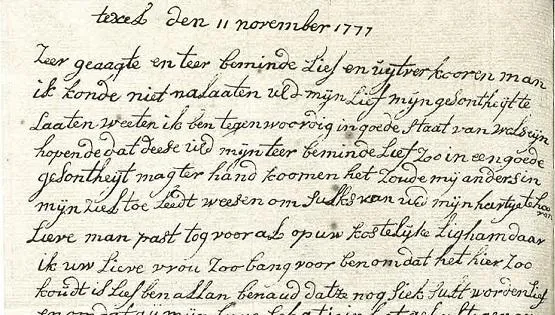 texel den 11 november 1777
Zeer geaagte en teer beminde Lief en uijtverkooren man
ik konde niet nalaaten uEd mijn Lief mijn gesontheijt te
Laaten weeten ik ben tegenwoordig in goede staat van welseijn
hopende dat deese uEd mijn teer beminde Lief Zoo in een goede
gesontheijt magter hand koomen het Zoude mij anders in
mijn ziel toe Leedt weesen om sulks van uEd mijn hartje te hooren
Lieve man past tog vooral op uw kostelijke Ligham daar
ik uw Lieve vrou Zoo bang voor ben omdat het hier Zoo
koudt is Lief ben al an benaud dat ze nog siek sult worden Lief
en omdat